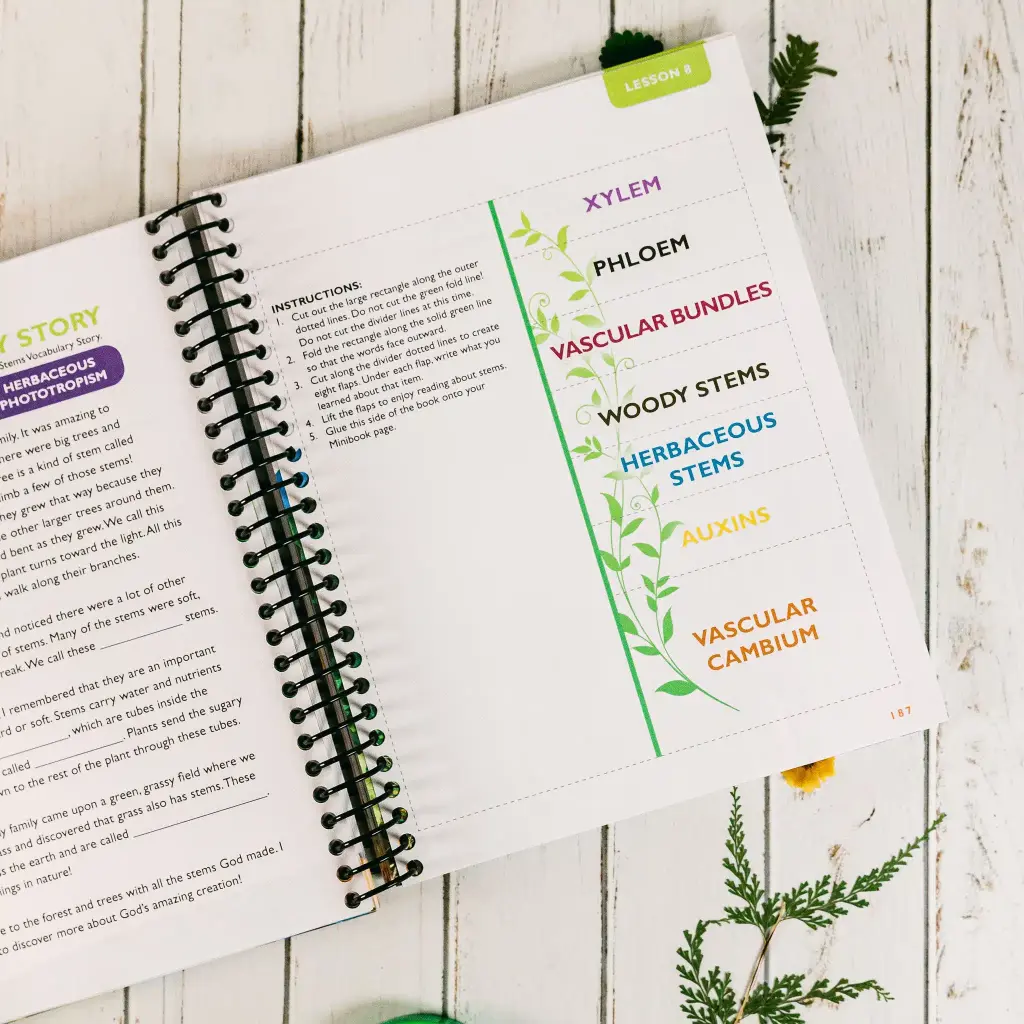 Y STORY
Stems Vocabulary Story.
HERBACEOUS
PHOTOTROPISM
mily. It was amazing to
here were big trees and
ree is a kind of stem called
limb a few of those stems!
hey grew that way because they
e other larger trees around them.
d bent as they grew. We call this
plant turns toward the light. All this
walk along their branches.
nd noticed there were a lot of other
of stems. Many of the stems were soft,
reak. We call these ____________ stems.
I remembered that they are an important
rd or soft. Stems carry water and nutrients
____________, which are tubes inside the
called ____________. Plants send the sugary
wn to the rest of the plant through these tubes.
y family came upon a green, grassy field where we
ass and discovered that grass also has stems. These
s the earth and are called ____________.
ings in nature!
e to the forest and trees with all the stems God made. I
to discover more about God's amazing creation!
LESSON 8
INSTRUCTIONS:
1. Cut out the large rectangle along the outer
dotted lines. Do not cut the green fold line!
Do not cut the divider lines at this time.
2. Fold the rectangle along the solid green line
so that the words face outward.
3. Cut along the divider dotted lines to create
eight flaps. Under each flap, write what you
learned about that item.
4. Lift the flaps to enjoy reading about stems.
5. Glue this side of the book onto your
Minibook page.
XYLEM
PHLOEM
VASCULAR BUNDLES
WOODY STEMS
HERBACEOUS
STEMS
AUXINS
VASCULAR
CAMBIUM
187